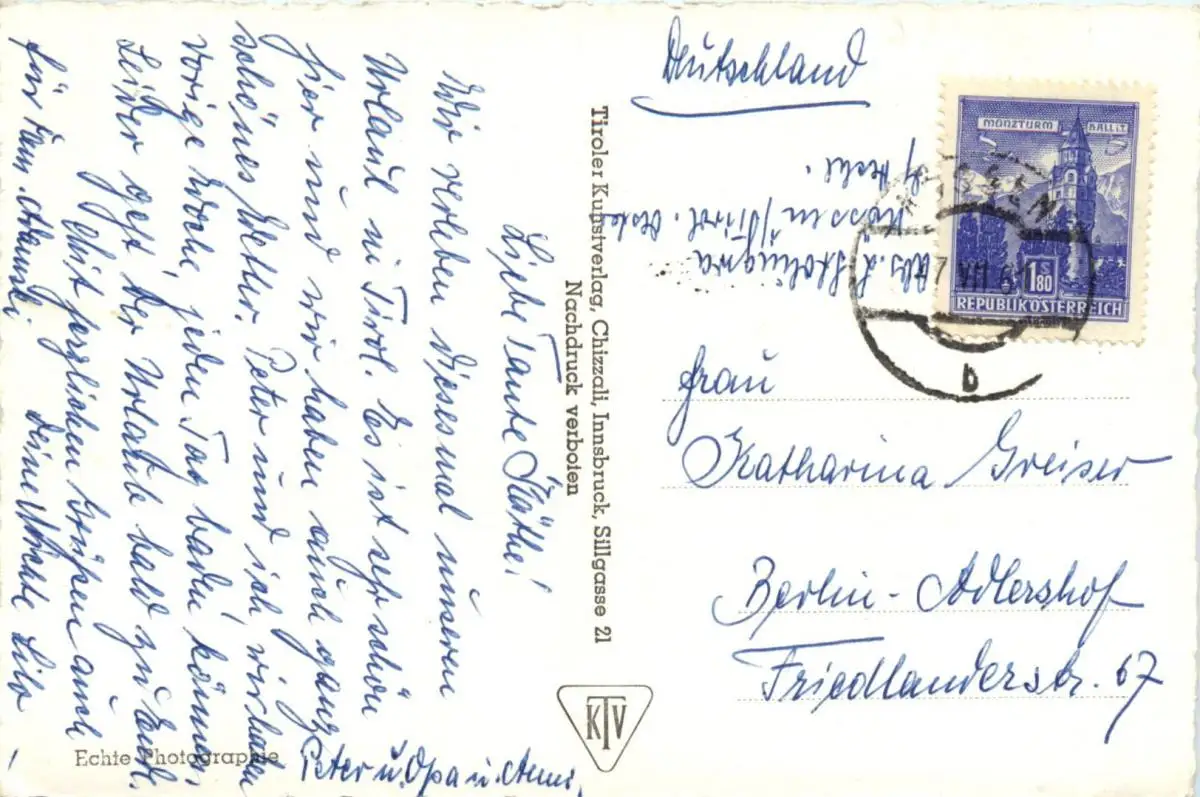 Liebe Tante Käthe!
Wir verleben dieses mal unseren
Urlaub in Tirol. Es ist sehr schön
hier und wir haben auch ganz
schönes Wetter. Peter und ich, wir haben
vorige Woche jeden Tag baden können.
Leider geht der Urlaub bald zu Ende.
Mit herzlichen Grüßen auch
für Fam.
Deine Nichte Lilo
Peter u. Opa u. Anni.
Echte Photographie
Tiroler Kunstverlag, Chizzali, Innsbruck, Sillgasse 21
Nachdruck verboten
KTV
Deutschland
Abs. L.
Kössen/Tirol.
MÜNZTURM HALL i.T.
1.80 S
REPUBLIK ÖSTERREICH
KÖSSEN
VII
b
Frau
Katharina Greiser
Berlin-Adlershof
Friedlanderstr. 67